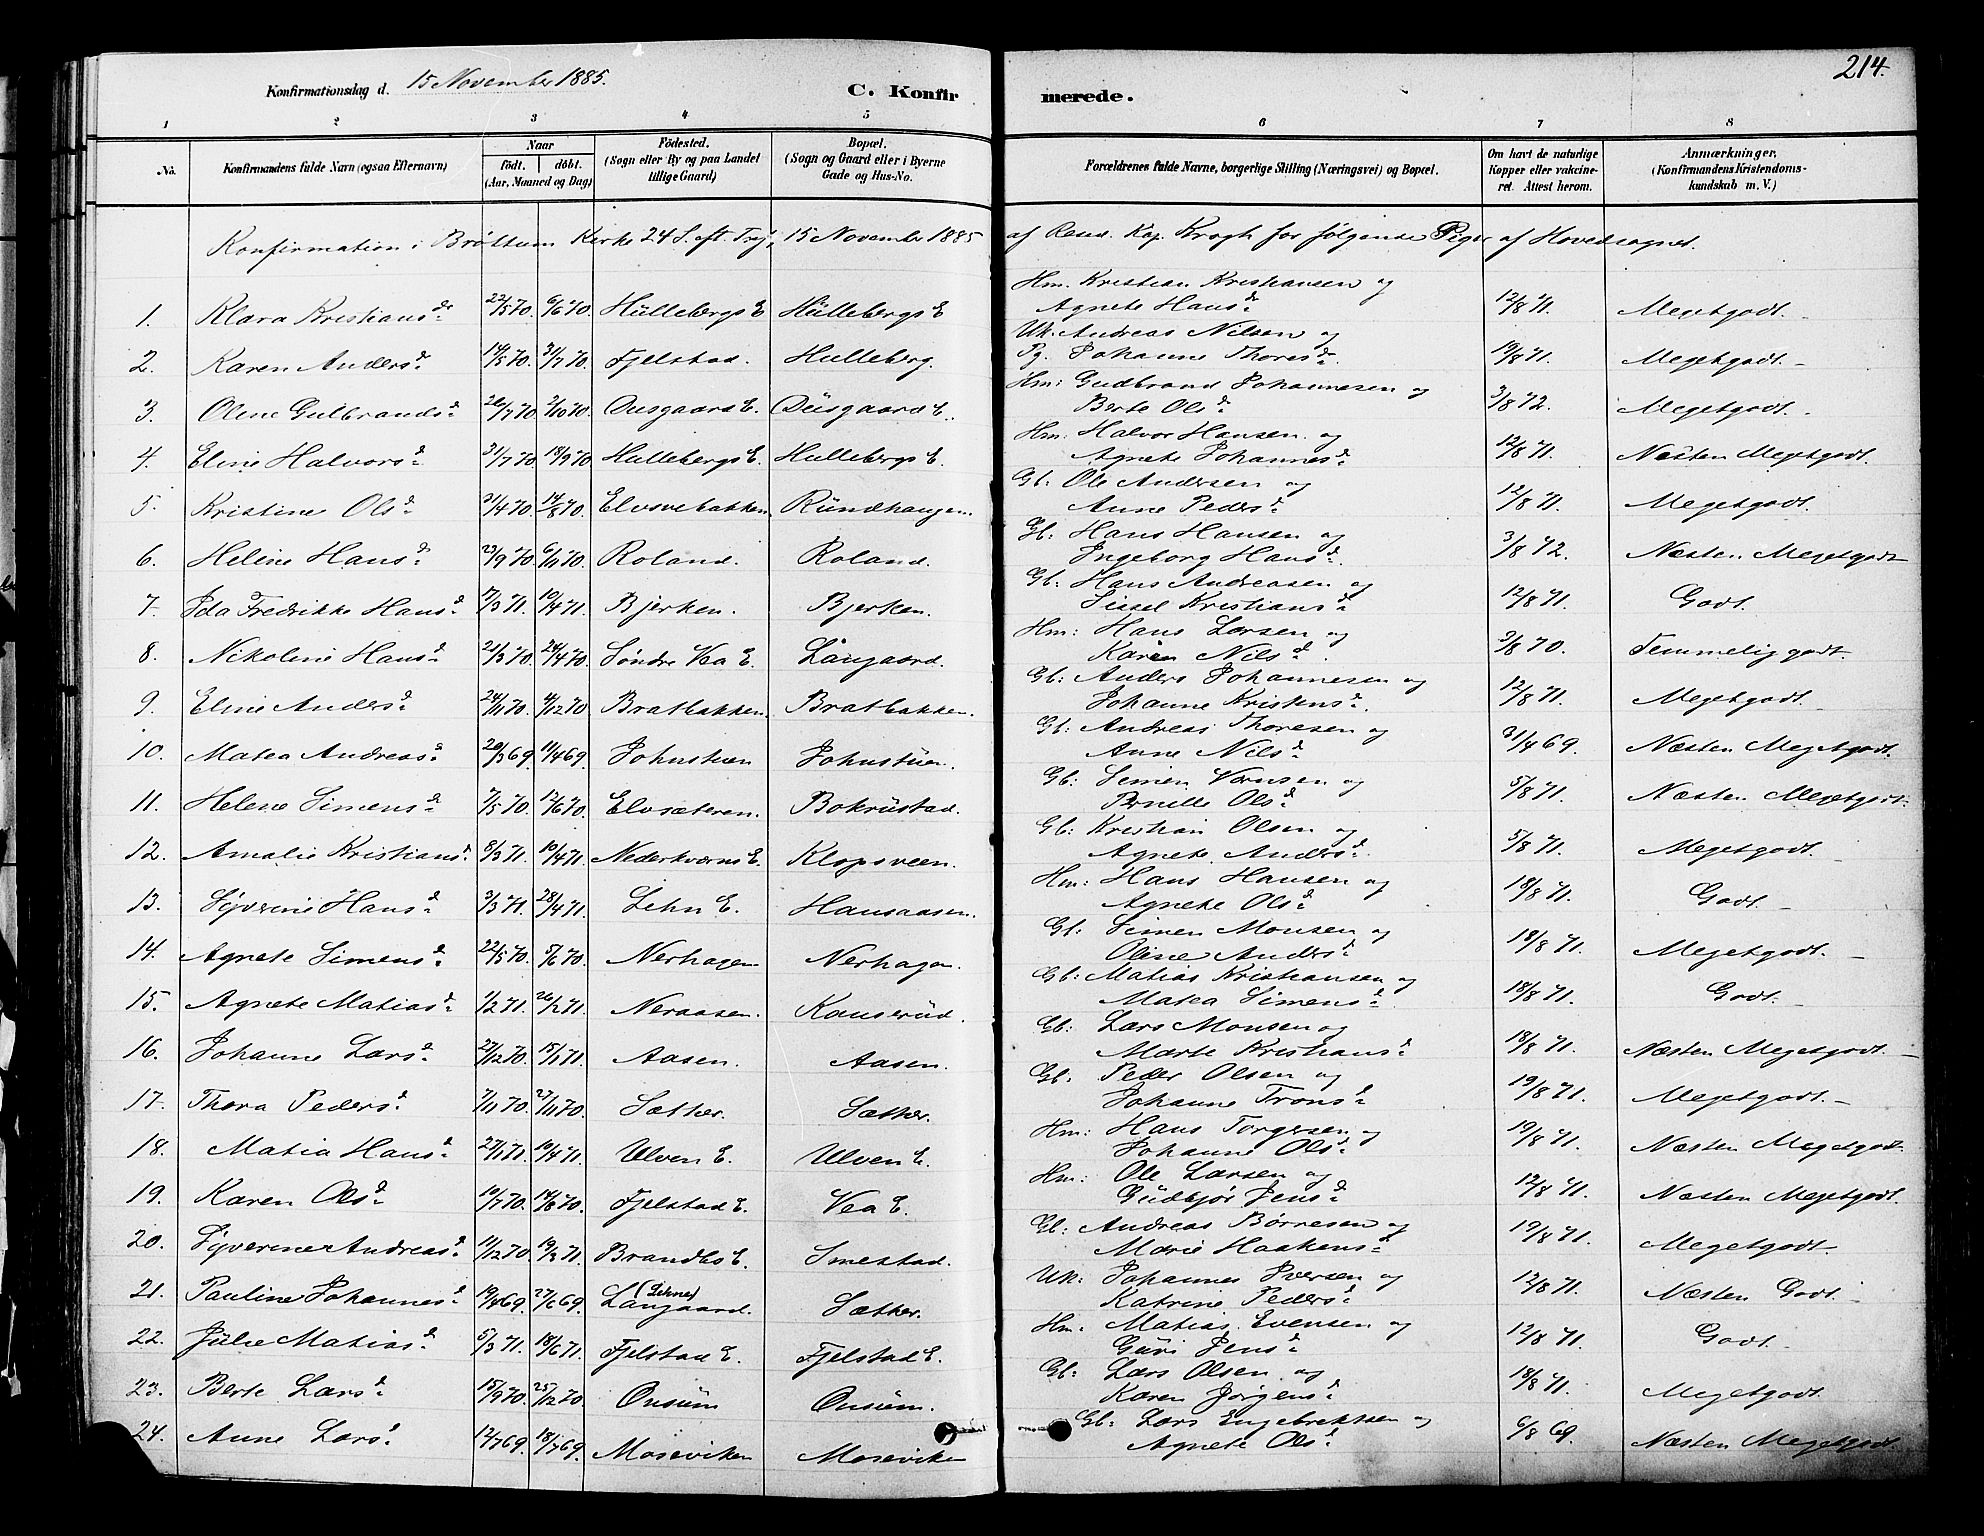 214.
Konfirmationsdag d. 15 November 1885.
C. Konfir merede.
1 2 3 4 5 6 7 8
No. Konfirmandens fulde Navn (ogsaa Efternavn) Naar födt. döbt. (Aar, Maaned og Dag) Födested. (Sogn eller By og paa Landet tillige Gaard) Bopæl. (Sogn og Gaard eller i Byerne Gade og Hus-No. Forældrenes fulde Navne, borgerlige Stilling (Næringsvei) og Bopæl. Om havt de naturlige Kopper eller vakcineret. Attest herom. Anmærkninger. (Konfirmandens Kristendomskundskab m. V.)
Konfirmation i Brøttum Kirke 24 S. eft. Tref. 15 November 1885 af Kap. Krogh for følgende Piger af Hovedsognet.
1. Klara Kristiansd. 22/5 70. 6/6 70. Hullebergs E Hullebergs E Hm. Kristian Kristiansen og Agnete Hansd. 12/8 71. Megetgodt.
2. Karen Andersd. 14/5 70. 31/7 70. Fjelstad. Hulleberg. Uk. Andreas Nilsen og Pg. Johanne Thoresd. 19/8 71. Megetgodt. -
3. Oline Gulbrandsd. 26/7 70. 2/10 70. Dusgaard E. Dusgaard E. Hm: Gudbrand Johannesen og Berte Olsd. 3/8 72. Megetgodt.
4. Eline Halvorsd. 31/7 70. 18/9 70. Hullebergs E. Hullebergs E. Hm: Halvor Hansen og Agnete Johannesd. 12/8 71. Næsten Megetgodt.
5. Kristine Olsd. 21/4 70. 14/8 70. Elvsvebakken. Rundhaugen. Gb: Ole Andersen og Anne Pedersd. 12/8 71. Megetgodt.
6. Helene Hansd. 23/9 70. 6/11 70. Roland. Roland. Gb. Hans Hansen og Ingeborg Hansd. 3/8 72. Næsten Megetgodt
7. Ida Fredrikke Hansd. 17/3 71. 10/4 71. Bjerken. Bjerken. Gb: Hans Andreasen og Sissel Kristiansd. 12/8 71. Godt.
8. Nikoline Hansd. 21/3 70. 24/4 70. Søndre Vea E. Langaard. Hm: Hans Larsen og Karen Nilsd. 3/8 70. Temmelig godt.
9. Eline Andersd. 24/11 70. 4/12 70 Bratbakken. Bratbakken. Gb: Anders Johannesen og Johanne Kristensd. 12/8 71. Megetgodt.
10. Matea Andreasd. 20/3 69. 11/4 69. Johnstuen Johnstuen. Gb: Andreas Thoresen og Anne Nilsd. 31/4 69. Næsten Megetgodt.
11. Helene Simensd. 7/5 70. 12/6 70. Elvsæteren. Bokrustad. Gb: Simen og Pernille Olsd. 5/8 71. Næsten Megetgodt.
12. Amalie Kristiansd. 8/3 71. 10/4 71. Nederkværns E. Klopsveen. Gb: Kristian Olsen og Agnete Andersd. 5/8 71. Megetgodt.
13. Syverine Hansd. 3/3 71. 28/4 71. Lehn E. Hansaasen. Hm: Hans Hansen og Agnete Olsd. 18/8 71. Godt. -
14. Agnete Simensd. 22/5 70. 5/6 70. Nerhagen Nerhagen. Gb. Simen Monsen og Oline Andersd. 18/8 71. Megetgodt. -
15. Agnete Matiasd. 1/2 71. 26/2 71. Neraasen. Kauserud. Gb: Matias Kristiansen og Matea Simensd. 18/8 71. Godt. -
16. Johanne Larsd. 27/12 70. 15/1 71. Aasen. Aasen. Gb: Lars Monsen og Marte Kristiansd. 18/8 71. Næsten Megetgodt. -
17. Thora Pedersd. 7/11 70. 27/11 70. Sæther. Sæther. Gb: Peder Olsen og Johanne Tronsd. 19/8 71. Megetgodt. -
18. Matia Hansd. 27/1 71. 10/4 71. Ulven E. Ulven E. Hm: Hans Torgersen og Johanne Olsd. 19/8 71. Næsten Megetgodt.
19. Karen Olsd. 10/7 70. 14/8 70. Fjelstad E. Vea E. Hm: Ole Larsen og Gudbjør Jensd. 12/8 71. Næsten Megetgodt.
20. Syverine Andreasd. 11/12 70 19/3 71. Brandbo E. Smestad. Gb: Andreas Børresen og Marie Haakensd. 19/8 71. Megetgodt.
21. Pauline Johannesd. 19/4 69. 27/6 69. Langaard. Sæther. Uk: Johannes Iversen og Katrine Pedersd. 12/8 71. Næsten Godt.
22. Julie Matiasd. 5/3 71. 18/6 71. Fjelstad E. Fjelstad E. Hm: Matias Evensen og Guri Jensd. 12/8 71. Godt.
23. Berte Larsd. 15/9 70. 25/12 70 Onsum Onsum. Gb: Lars Olsen og Karen Jörgensd. 18/8 71. Megetgodt.
24. Anne Larsd. 12/7 69. 18/7 69. Moseviken Moseviken Gb: Lars Engebrektsen og Agnete Olsd. 6/8 69. Næsten Megetgodt.